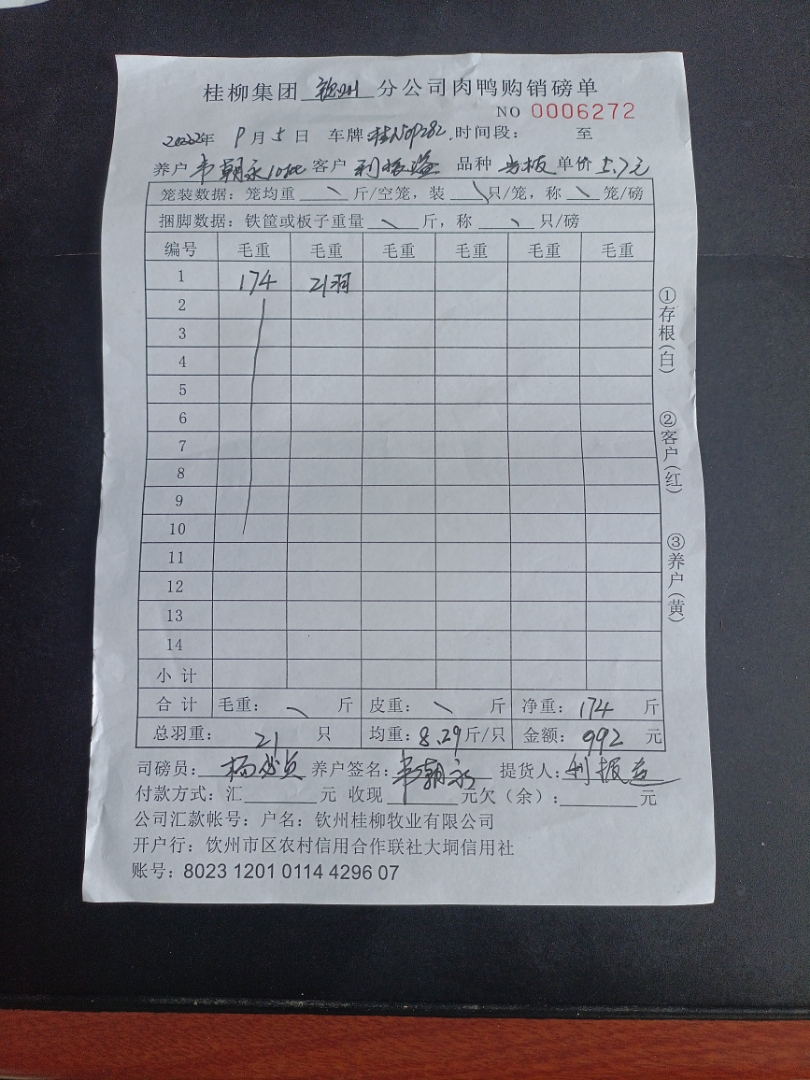 桂柳集团 钦州 分公司肉鸭购销磅单
NO 0006272
2022年 9月5日 车牌 桂N0P282 时间段： 至
养户 韦朝永 客户 利振 品种 单价 5.7元
笼装数据：笼均重 \ 斤/空笼，装 \ 只/笼，称 \ 笼/磅
捆脚数据：铁筐或板子重量 \ 斤，称 \ 只/磅
编号 毛重 毛重 毛重 毛重 毛重 毛重
1 174 21羽
2
3
4
5
6
7
8
9
10
11
12
13
14
小计
合计 毛重： \ 斤 皮重： \ 斤 净重：174 斤
总羽重： 21 只 均重：8.29斤/只 金额：992 元
司磅员： 杨 养户签名：韦朝永 提货人：利振
付款方式：汇 元 收现 元欠（余）： 元
公司汇款帐号：户名：钦州桂柳牧业有限公司
开户行：钦州市区农村信用合作联社大垌信用社
账号：8023 1201 0114 4296 07
①存根（白）
②客户（红）
③养户（黄）